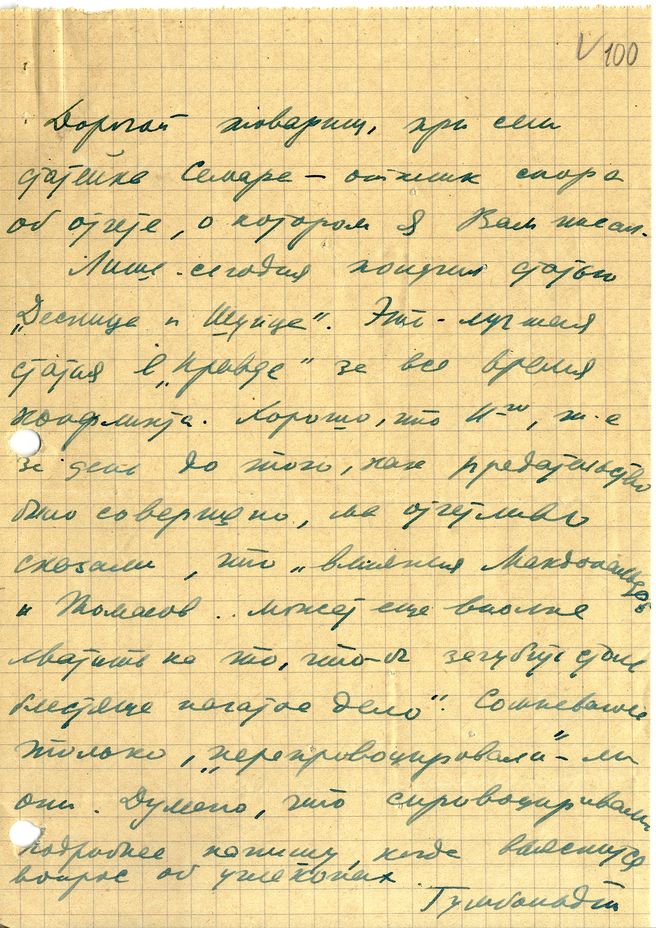 V 100
Дорогой товарищ, при сем
статейка Семара – отклик спора
об отчете, о котором я Вам писал.
Лишь сегодня получил статью
„Десница и Шуйца". Это – лучшая
статья в „Правде" за все время
конфликта. Хорошо, что 11-го, т.е
за день до того, как предательство
было совершено, мы отчетливо
сказали, что „влияния Макдональдов
и Томасов .. может еще вполне
хватить на то, что-б загубить столь
блестяще начатое дело". Сомневаюсь
только, „перепровоцировали"-ли
они. Думаю, что спровоцировали
Подробнее напишу, когда выяснится
вопрос об углекопах.